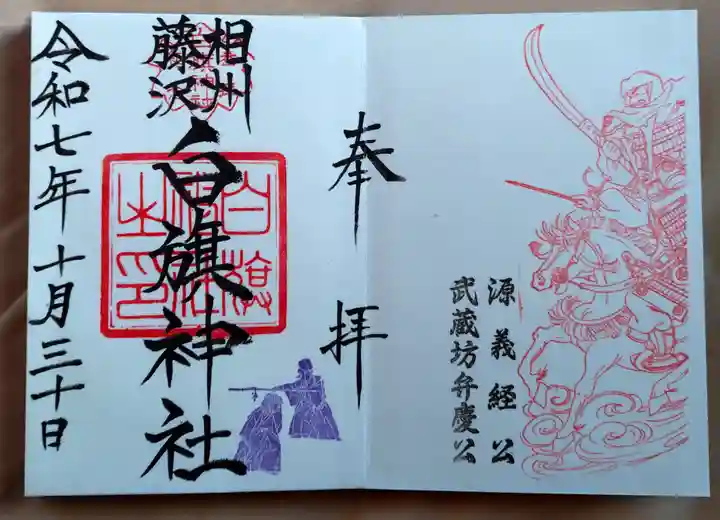 源義経公
武蔵坊弁慶公
奉拝
相州
藤沢
白旗神社
白旗
神社
之印
令和七年十月三十日